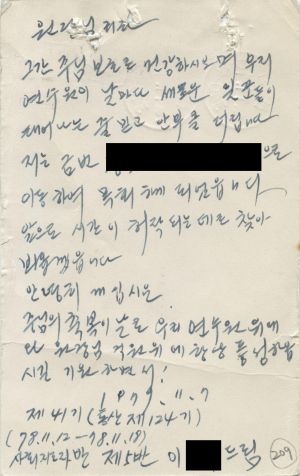 원장님 귀하
그간 주님 보호로 건강하시오며 우리
연수원의 날마다 새로운 일꾼들이
태어나는 줄 믿고 안부를 드립니다
저는 금번 으로
이동하여 목회하게 되었읍니다
앞으로 시간이 허락되는데로 찾아
뵈옵겠읍니다
안녕히 계십시요
주님의 축복이 날로 우리 연수원 위에
와 원장님 직원 위에 한상 풍성하옵
시길 기원하면서!
1979. . 7
제41기 (통산 제124기)
(78.11.12 - 78.11.18)
사회지도자반 제5반 이 드림
209